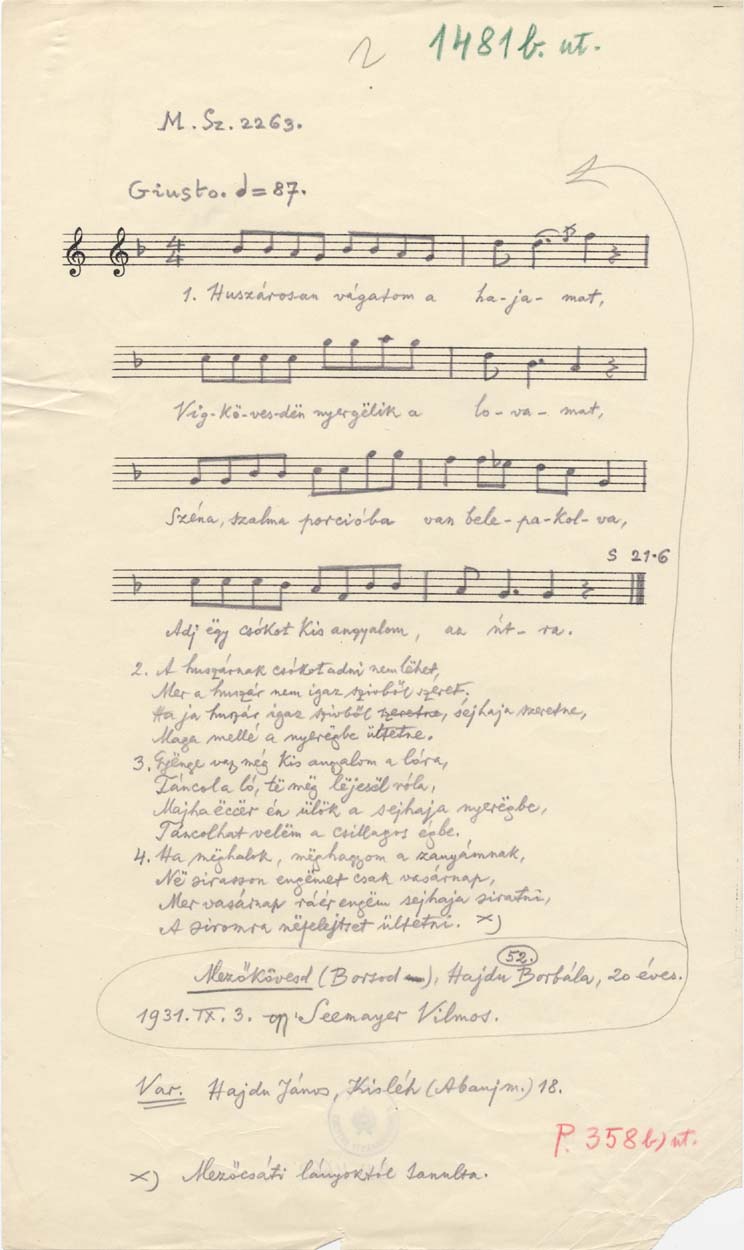 2
1481 b. ut.
M. Sz. 2263.
Giusto. d = 87.
1. Huszárosan vágatom a ha-ja-mat,
Víg-kö-ves-dën nyergëlik a lo-va-mat,
Széna, szalma porcióba van bele-pa-kol-va,
S 21·6
Adj ëgy csókot kis angyalom, az út-ra.
2. A huszárnak csókot adni nem lëhet,
Mer a huszár nem igaz szivből szeret.
Ha ja huszár igaz szivből szeretne, sejhaja szeretne,
Maga mellé a nyerëgbe ültetne.
3. Gyënge vagy még kis angyalom a lóra,
Táncol a ló, të még lëjesël róla,
Majha ëccër én ülök a sejhaja nyerëgbe,
Táncolhat velëm a csillagos égbe.
4. Ha mëghalok, mëghagyom a zanyámnak,
Në sirasson engëmet csak vasárnap,
Mer vasárnap ráér engëm sejhaja siratni,
A siromra nëfelejtset ültetni. x)
52.
Mezőkövesd (Borsod), Hajdu Borbála, 20 éves.
1931. IX. 3. Seemayer Vilmos.
Var. Hajdu János, Kisléh (Abauj m.) 18.
P. 358 b) ut.
x) Mezőcsáti lányoktól tanulta.